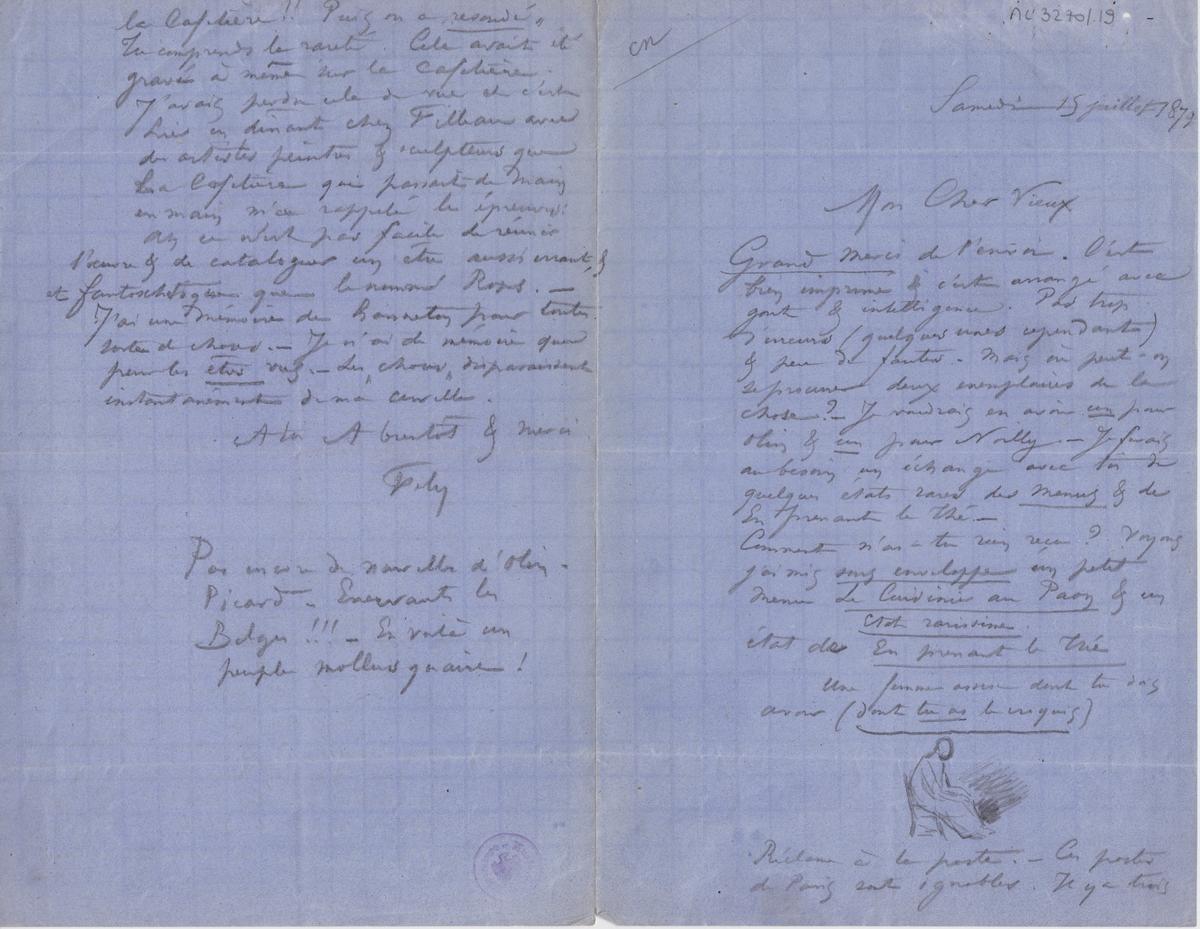 la Cafetière !! Puis on a "resoudé"
Tu comprends la rareté. Cela avait été
gravé à même sur la cafetière.
J'avais perdu cela de vue et c'est
hier en dinant chez Filleau avec
des artistes peintres & sculpteurs que
La Cafetière qui passait de main
en main m'en rappela les épreuves!
Ah ce n'est pas facile de réunir
l'œuvre & de cataloguer un être aussi errant &
et fantoschtique que le nommé Rops. —
J'ai une mémoire de hanneton pour toutes
sortes de choses. — Je n'ai de mémoire que
pour les êtres vus. — Les "choses" disparaissent
instantanément de ma cervelle.
A toi A bientôt & merci
Fély
Pas encore de nouvelles d'Olin -
Picard. Enervants les
Belges !!! — En voilà un
peuple mollusquaire !
AU 3270/.19
CN
Samedi 15 juillet 1879
Mon Cher Vieux
Grand merci de l'envoi. C'est
bien imprimé & c'est arrangé avec
gout & intelligence. Pas trop
d'erreurs (quelques unes cependants)
& peu de fautes. Mais où peut-on
se procurer deux exemplaires de la
chose ? — Je voudrais en avoir un pour
Olin & un pour Noilly. — Je ferais
au besoin un échange avec toi de
quelques états rares des menus & de
En prenant le thé —
Comment n'as-tu rien reçu ? Voyons
j'ai mis sous enveloppe un petit
menu Le Cuisinier au Paon & un
état rarissime.
état de En prenant le Thé
Une femme assise dont tu dois
avoir (dont tu as le croquis)
Réclame à la poste. — Ces postes
de Paris sont ignobles. Il y a trois